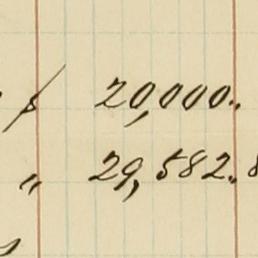 $ 20,000.
" 29,582.8